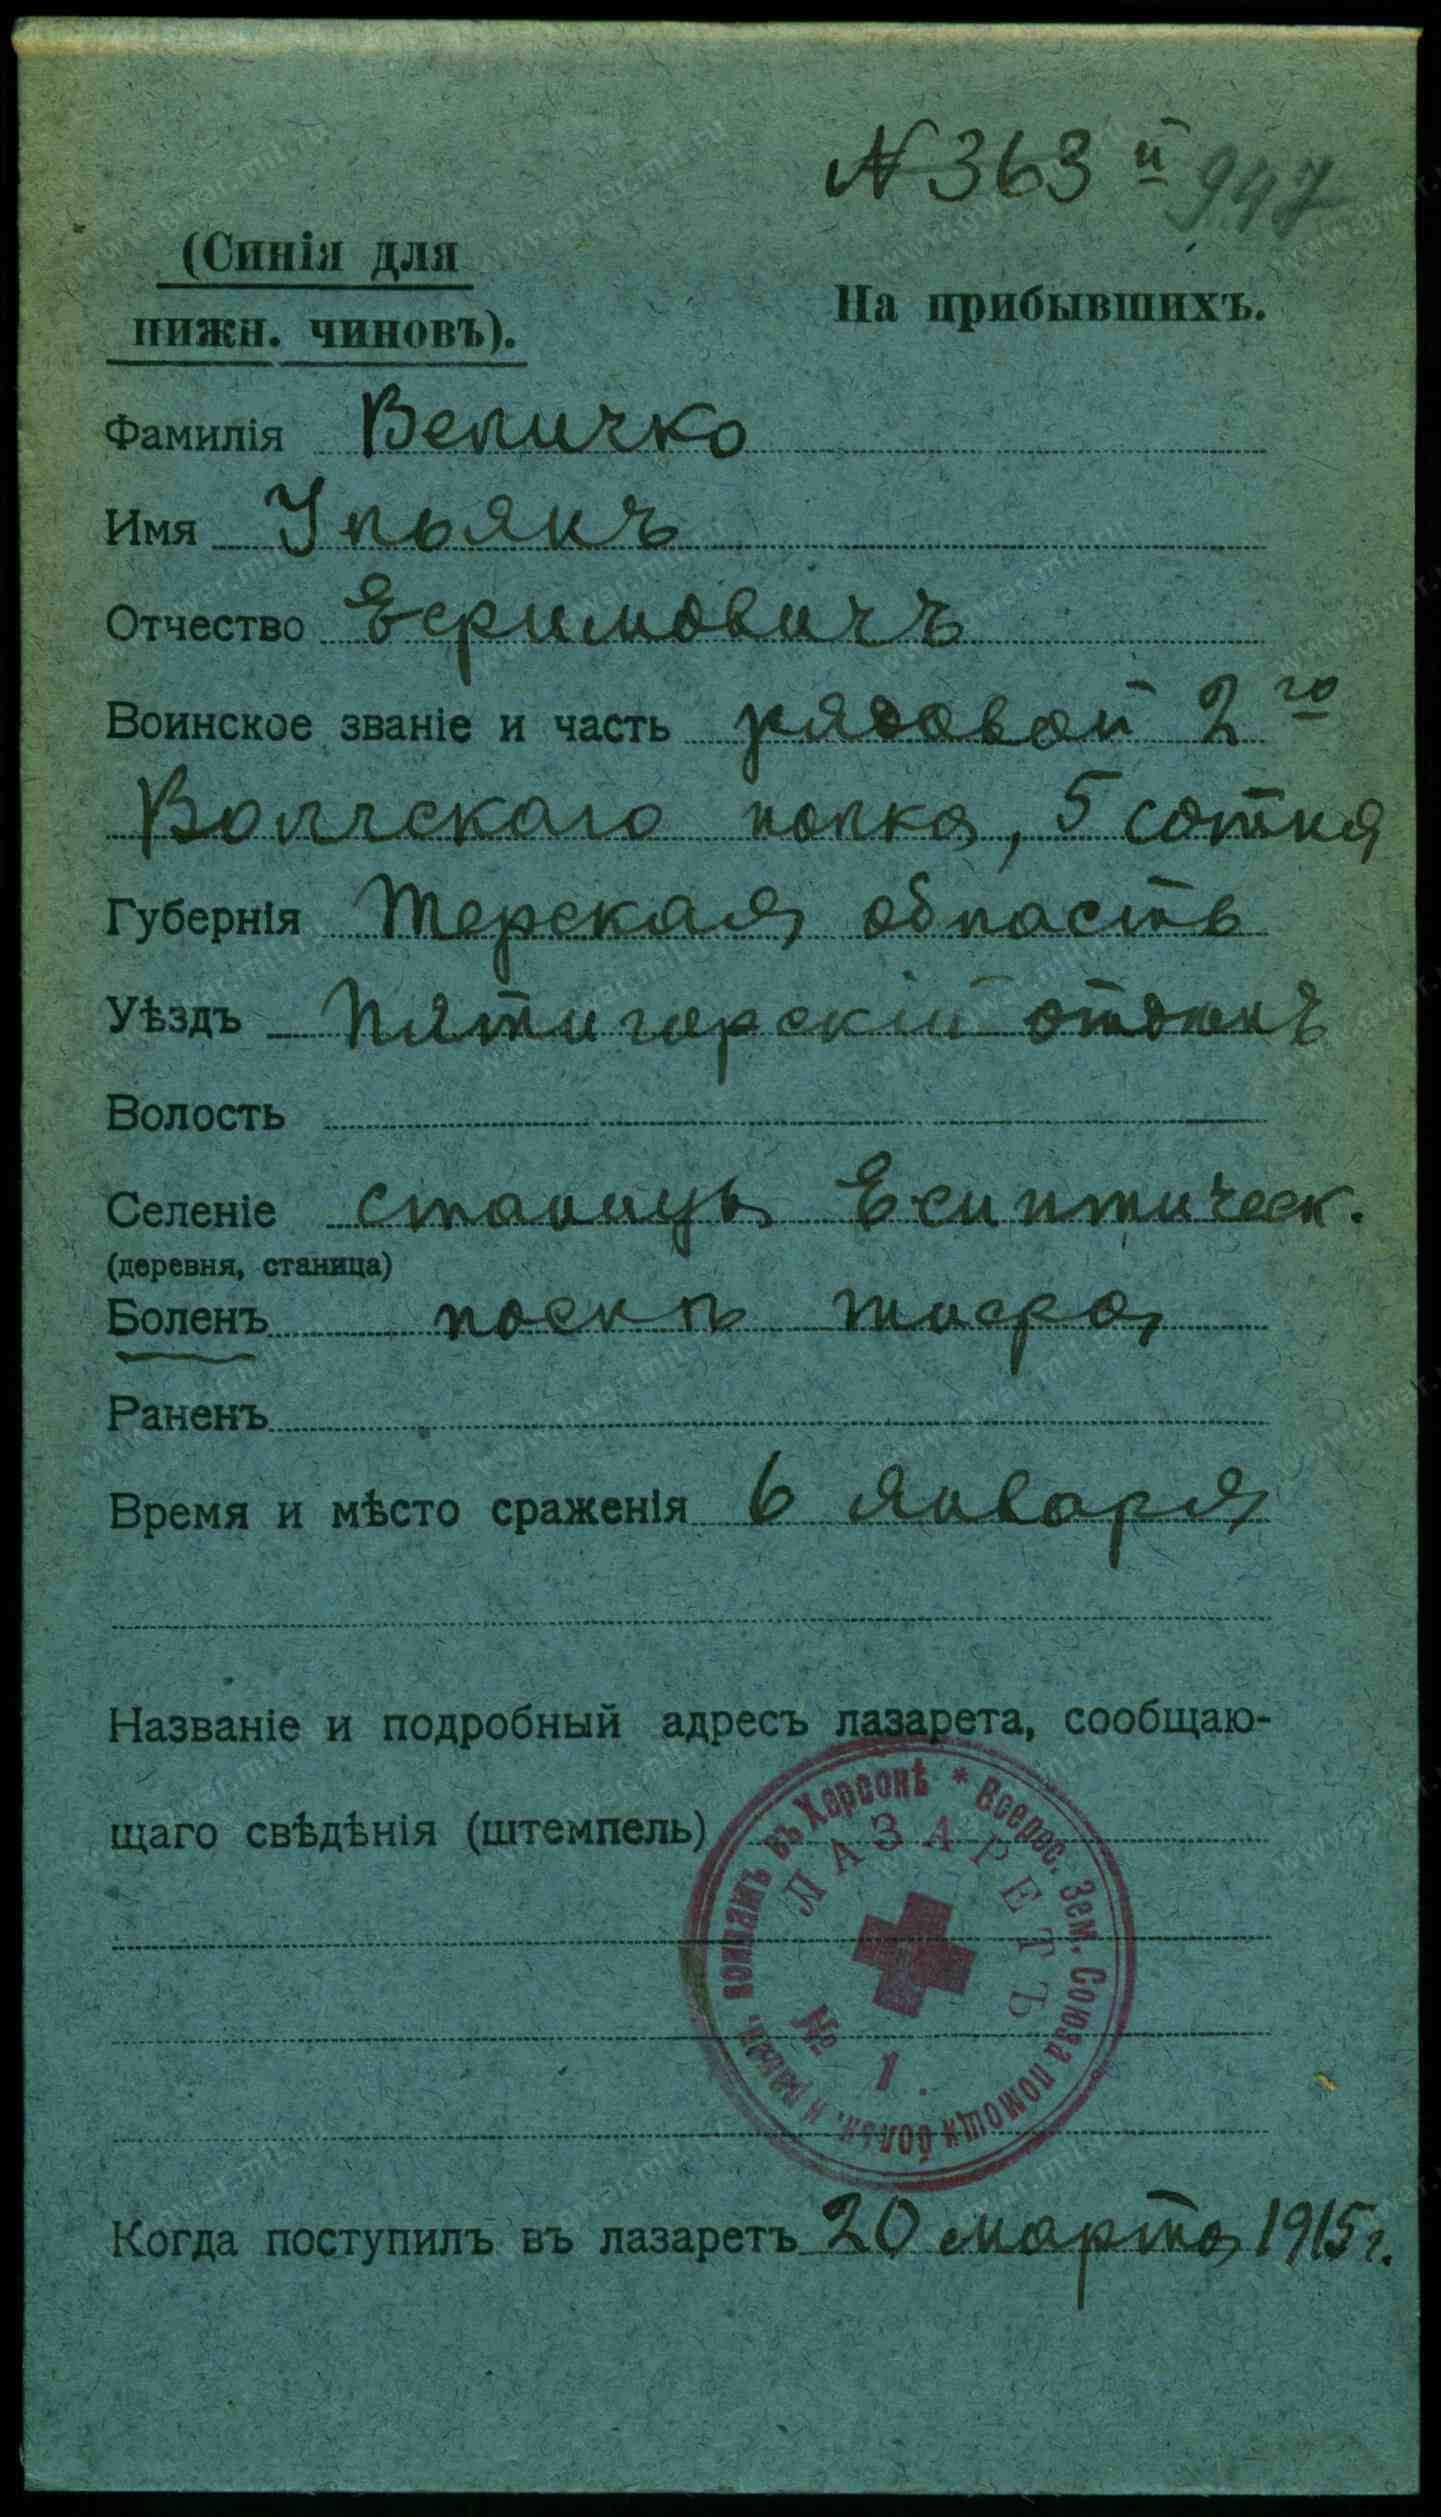 № 363 й 947
(Синія для
нижн. чиновъ).
На прибывшихъ.
Фамилія Величко
Имя Ульянъ
Отчество Ефимовичъ
Воинское званіе и часть рядовой 2го
Волгскаго полка, 5 сотня
Губернія Терская область
Уѣздъ Пятигорскій отдѣлъ
Волость
Селеніе станица
(деревня, станица)
Боленъ послѣ тифа
Раненъ
Время и мѣсто сраженія 6 января
Названіе и подробный адресъ лазарета, сообщаю-
щаго свѣдѣнія (штемпель)
Всерос. Зем. Союза помощи больн. и ранен. воинамъ въ Херсонѣ *
ЛАЗАРЕТЪ
№ 1.
Когда поступилъ въ лазаретъ 20 марта 1915 г.